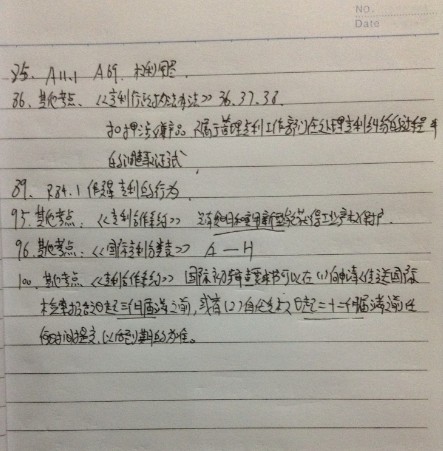 NO.
Date
85. A11.1 A69. 权利用尽.
86. 其他考点. 《专利行政执法办法》36. 37. 38.
扣押涉嫌产品 只属于管理专利工作部门在处理专利纠纷的过程中
的调查取证
89. R84.1 假冒专利的行为
95. 其他考点: 《专利合作条约》 只有发明和实用新型
96. 其他考点: 《国际专利分类表》 A — H
100. 其他考点 《专利合作条约》 国际初步审查要求书可以在(1)自申请人传送国际
检索报告之日起三个月届满之前, 或者(2)自优先权日起二十二个月届满之前任
何时间提交, 以后到期的为准。